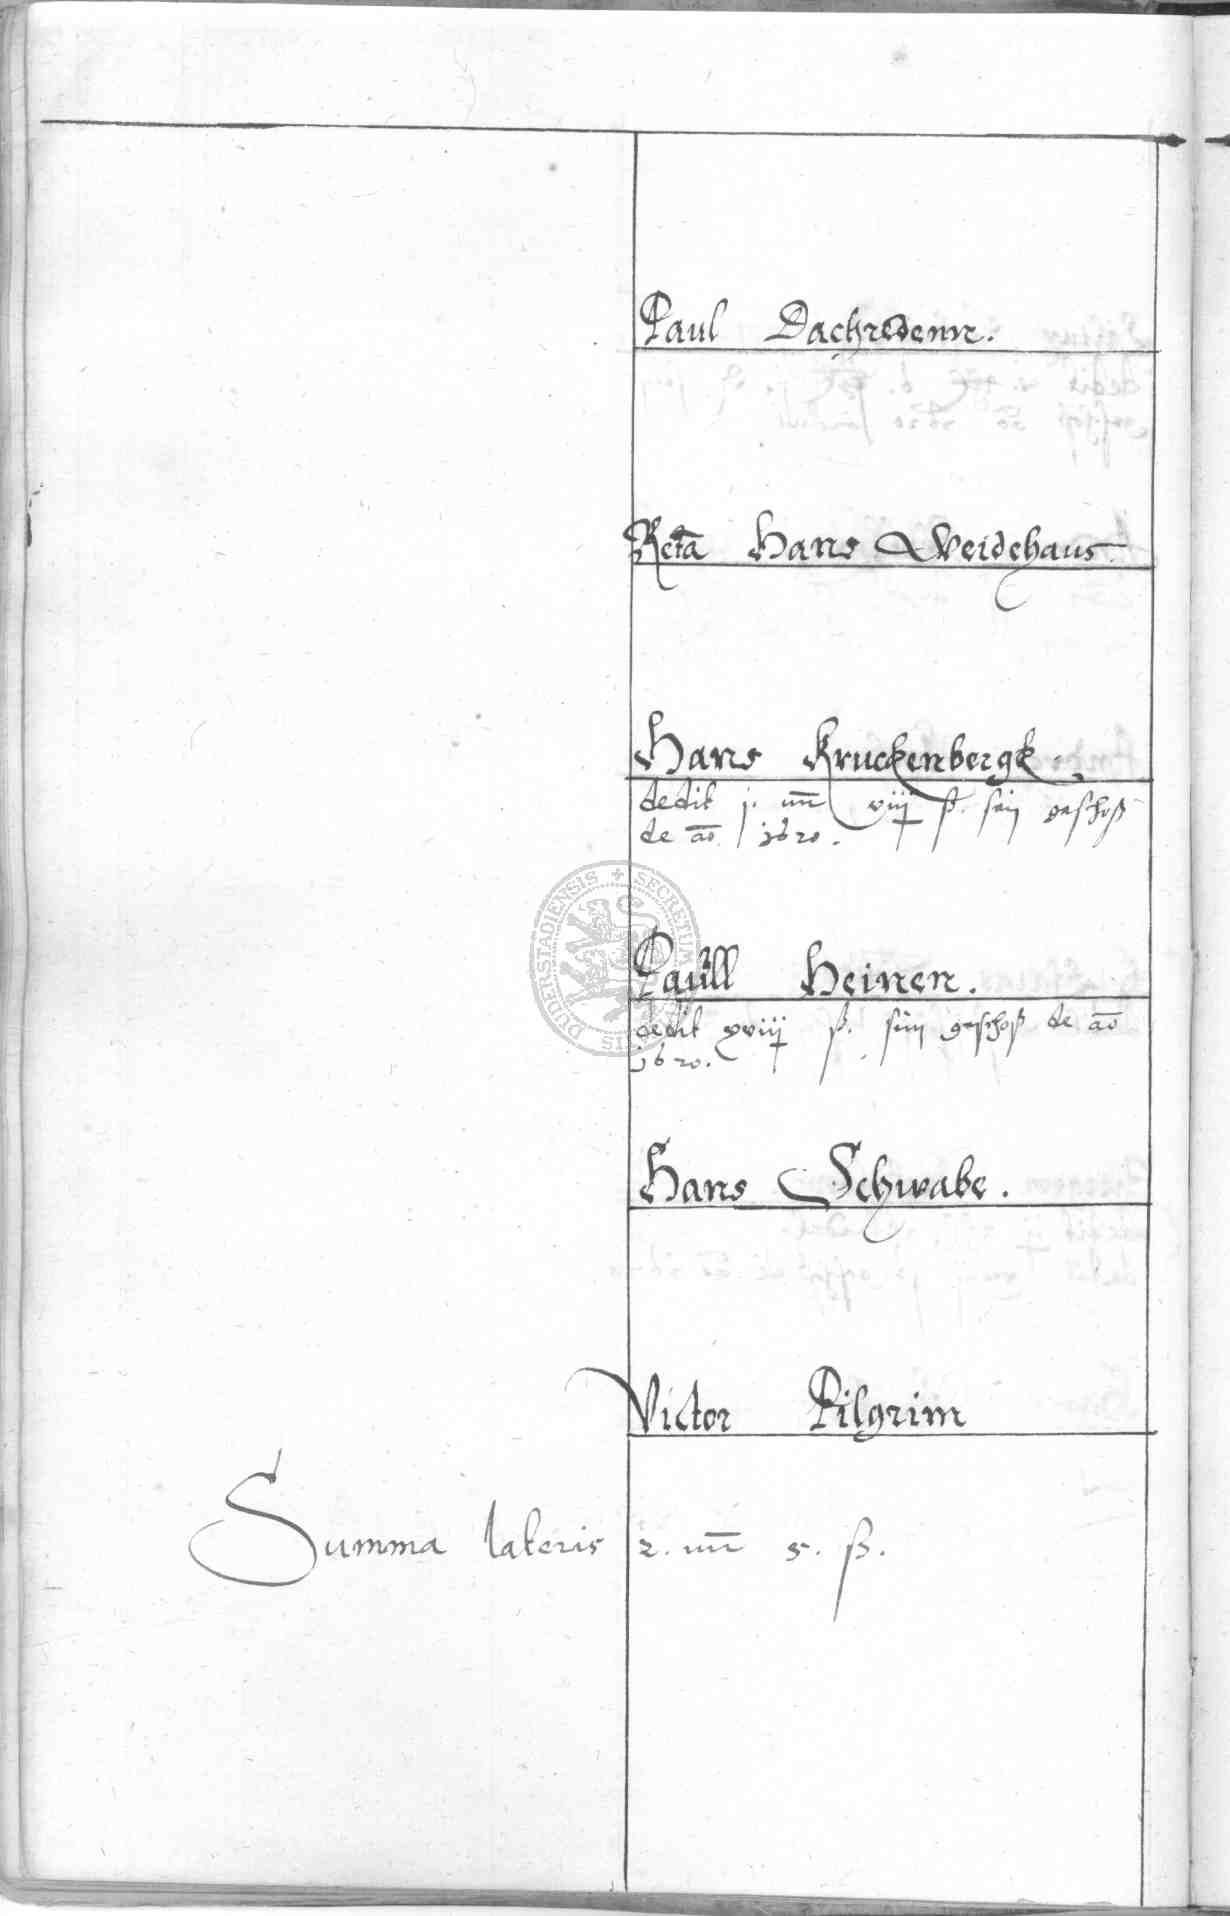 Paul Dachredenn.
Relta Hans Weidehaus
Hans Kruckenbergk.
dedit j. mr viij ß. sein geschoß
de ao 1620.
Paull Heinen.
dedit xviij ß. sein geschoß de ao
1620.
Hans Schwabe.
Victor Pilgrim
Summa lateris 2. mr 5. ß.
DUDERSTADIENSIS + SECRETUM